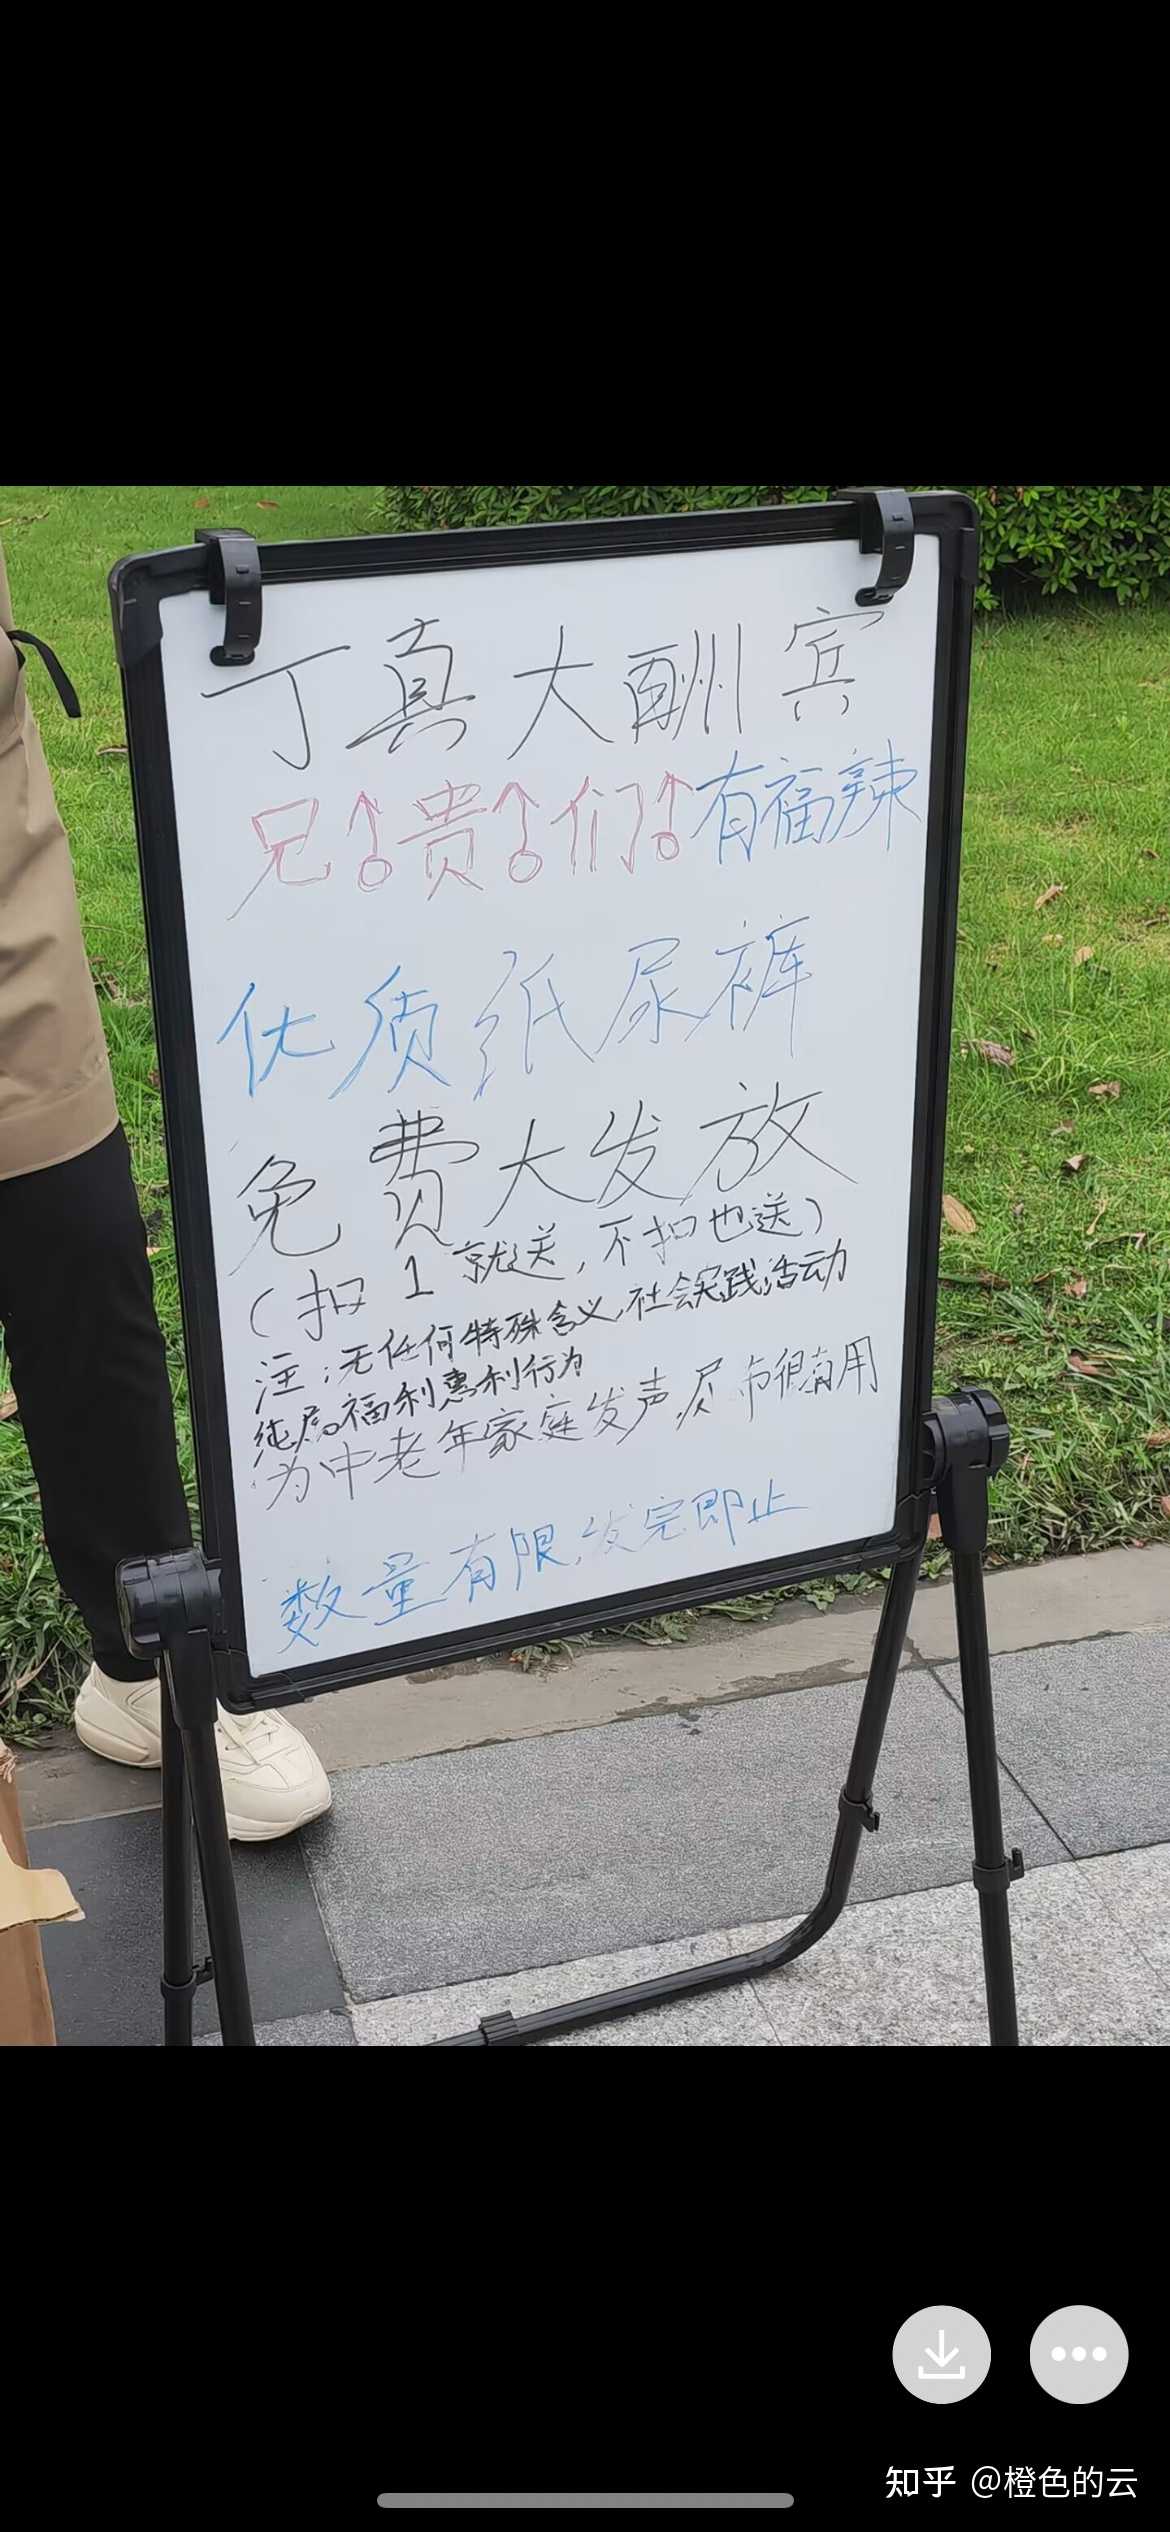 丁真大酬宾
兄↑贵↑们↑有福辣
优质纸尿裤
免费大发放
（扣1就送，不扣也送）
注：无任何特殊含义，社会实践活动
纯属福利惠利行为
为中老年家庭发声，尿布很有用
数量有限，发完即止
知乎 @橙色的云